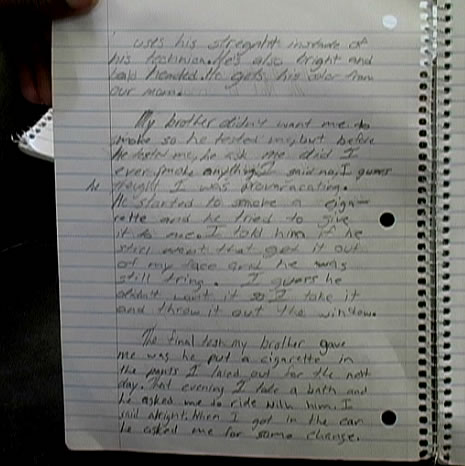 uses his stregnht instude of
his technian. He's also bright and
bald headed. He gets his color from
our mom.
My brother didn't want me to
smoke so he tested me, but before
he tested me, he ask me did I
ever smoke anything, I said no, I guess
he thought I was provaracating.
He started to smoke a ciga-
rette and he tried to give
it to me. I told him if he
still want that get it out
of my face and he was
still tring. I guess he
didn't want it so I take it
and throw it out the window.
The final test my brother gave
me was he put a cigarette in
the pants I laied out for the next
day. That evening I take a bath and
he asked me to ride with him. I
said alright. When I got in the car
he asked me for some change.